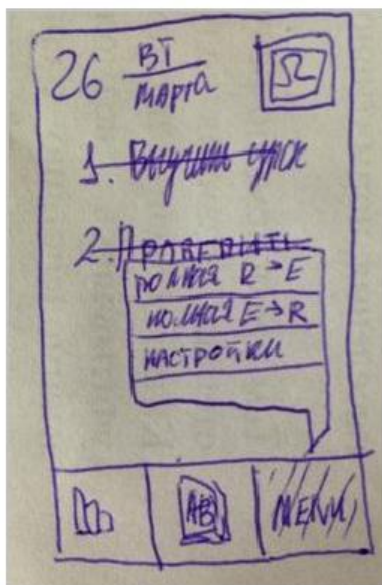 26 ВТ
марта
1. Выучить урок
2. Проверить
полная R → E
полная E → R
настройки
AB
MENU